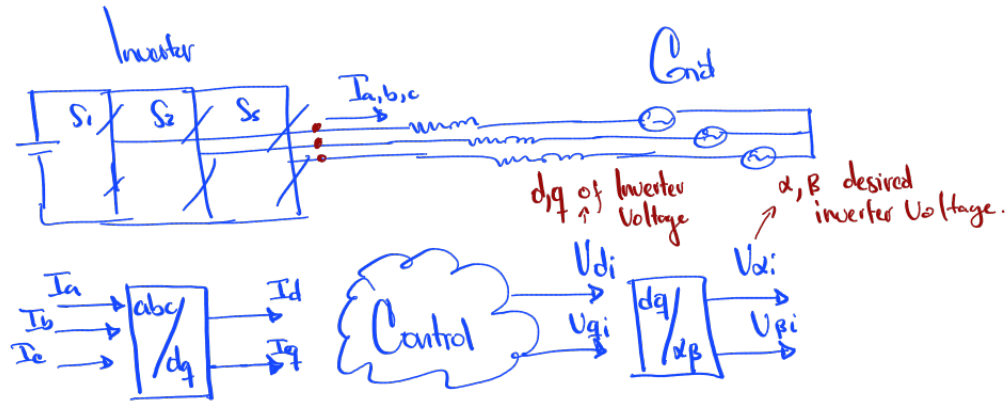 Inverter
Grid
S1 S2 S3
Ia,b,c
d,q of Inverter
Voltage
α, β desired
inverter Voltage.
Ia
Ib
Ic
abc
dq
Id
Iq
Control
Udi
Uqi
dq
αβ
Uαi
Uβi